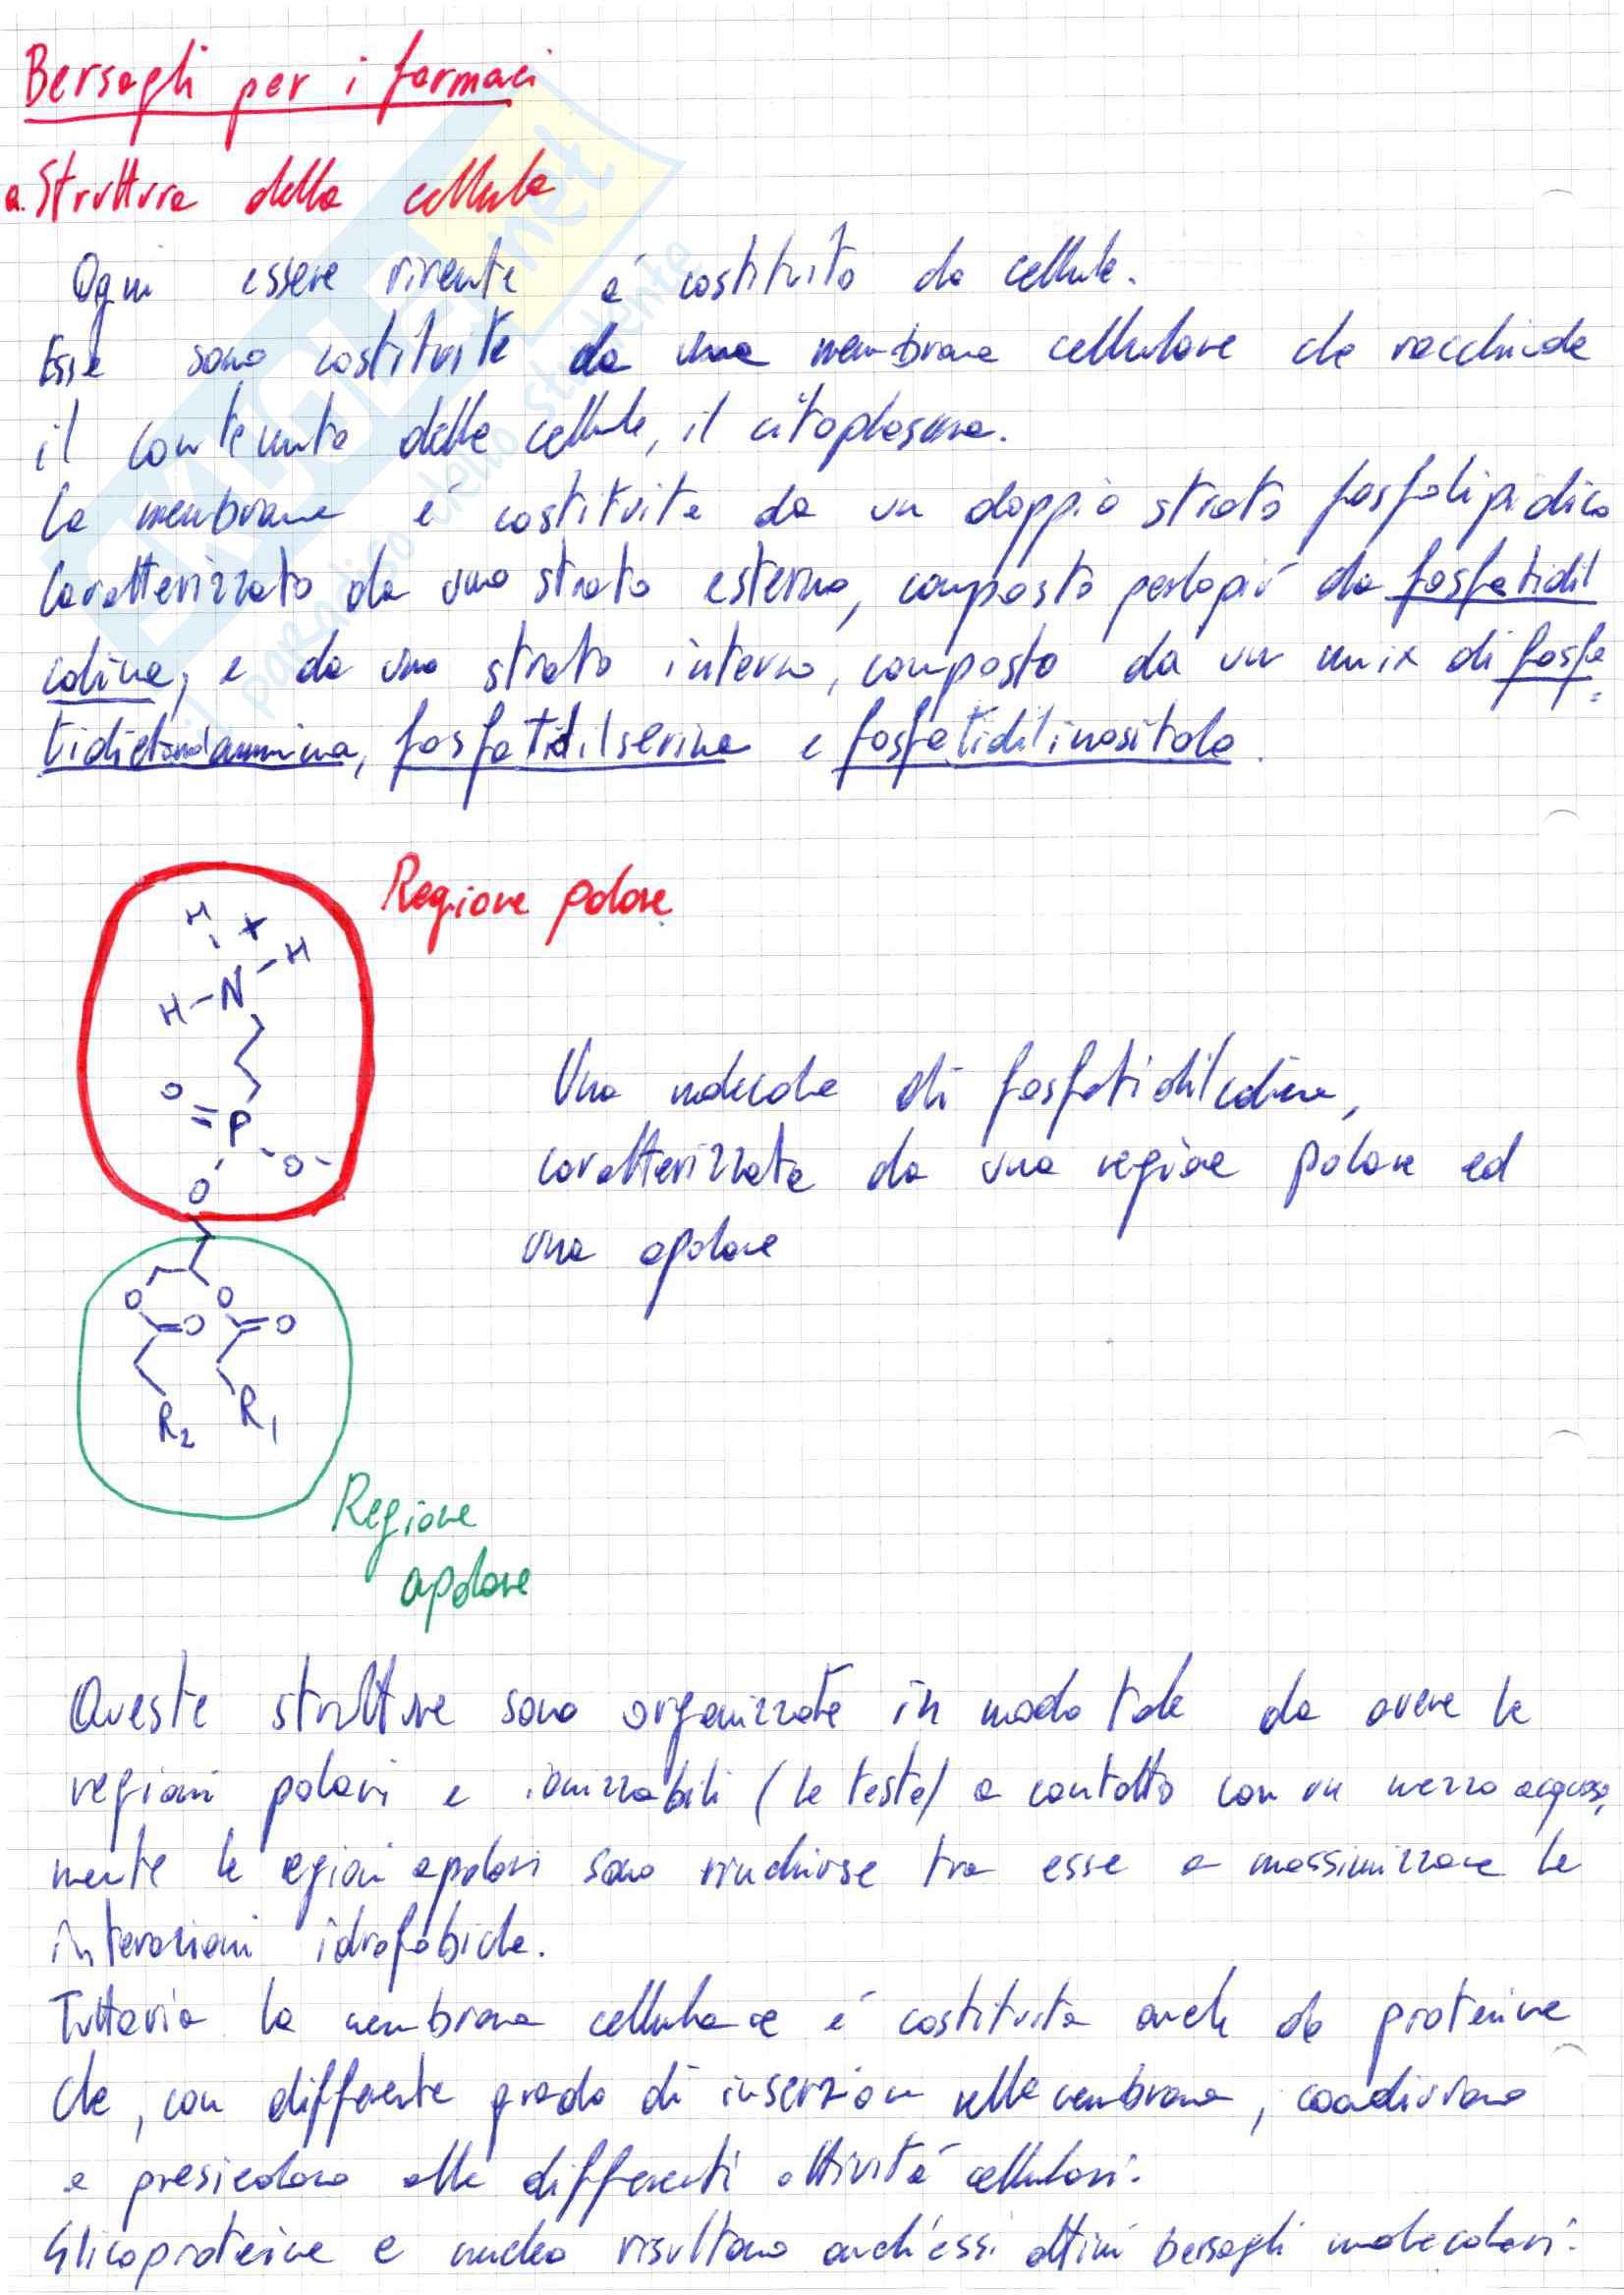 Bersagli per i farmaci
a. Struttura della cellula
Ogni essere vivente é costituito da cellule.
Esse sono costituite da una membrana cellulare che racchiude
il contenuto della cellula, il citoplasma.
La membrana é costituita da un doppio strato fosfolipidico
caratterizzato da uno strato esterno, composto perlopiú da fosfatidil
colina, e da uno strato interno, composto da un mix di fosfa=
tidiletanolammina, fosfatidilserina e fosfatidilinositolo.
Regione polare
H +
H
H-N
O
=P
O-
O
Una molecola di fosfatidilcolina,
caratterizzata da una regione polare ed
una apolare
O O
O O
R2 R1
Regione
apolare
Queste strutture sono organizzate in modo tale da avere le
regioni polari e ionizzabili (le teste) a contatto con un mezzo acquoso,
mente le egioni apolari sono rinchiuse tra esse a massimizzare le
interazioni idrofobiche.
Tuttavia la membrana cellulare é costituita anche da proteine
che, con differente grado di inserzione nella membrana, coadiuvano
e presiedono alle differenti attivitá cellulari.
Glicoproteine e nucleo risultano anch'essi ottimi bersagli molecolari.
SKUOLA.net
il paradiso dello studente